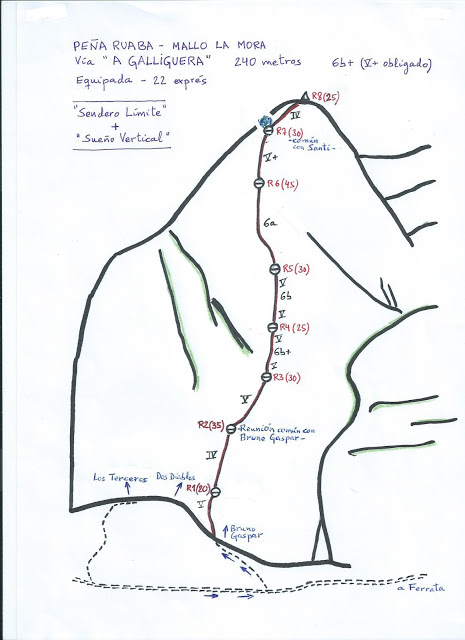 PEÑA RUABA - MALLO LA MORA
Vía "A GALLIGUERA" 240 metros 6b+ (V+ obligado)
Equipada - 22 exprés
"Sendero Límite"
+
"Sueño Vertical"
R8(25)
IV
R7(30)
-común
con Santi-
V+
R6(45)
6a
R5(30)
V
6b
V
R4(25)
V
6b+
V
R3(30)
V
R2(35)
-Reunión común con
Bruno Gaspar-
IV
Los Terceros
Dos Diablos
R1(20)
V
Bruno
Gaspar
a Ferrata